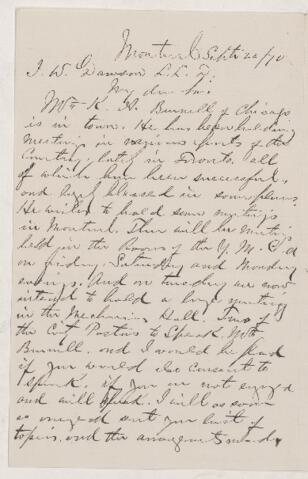 Montreal Sept 20/70
J. W. Dawson L.L.D.
My dear Sir.
Mr K. A. Burnell of Chicago
is in town. He has been holding
meetings in various parts of the
Country, lately in Toronto. all
of which have been successful,
and blessed in some places
He wishes to hold some meetings
in Montreal. There will be meetings
held in the Rooms of the Y. M. C. A
on friday Saturday and Monday
evenings. And on tuesday we now
intend to hold a large meeting
in the Mechanics Hall. Two of
the City Pastors to Speak. Mr
Burnell. and I would be glad
if you would also consent to
speak. if you are not engaged
and will speak. I will as soon
as arranged send you list of
topics. and the arrangements made